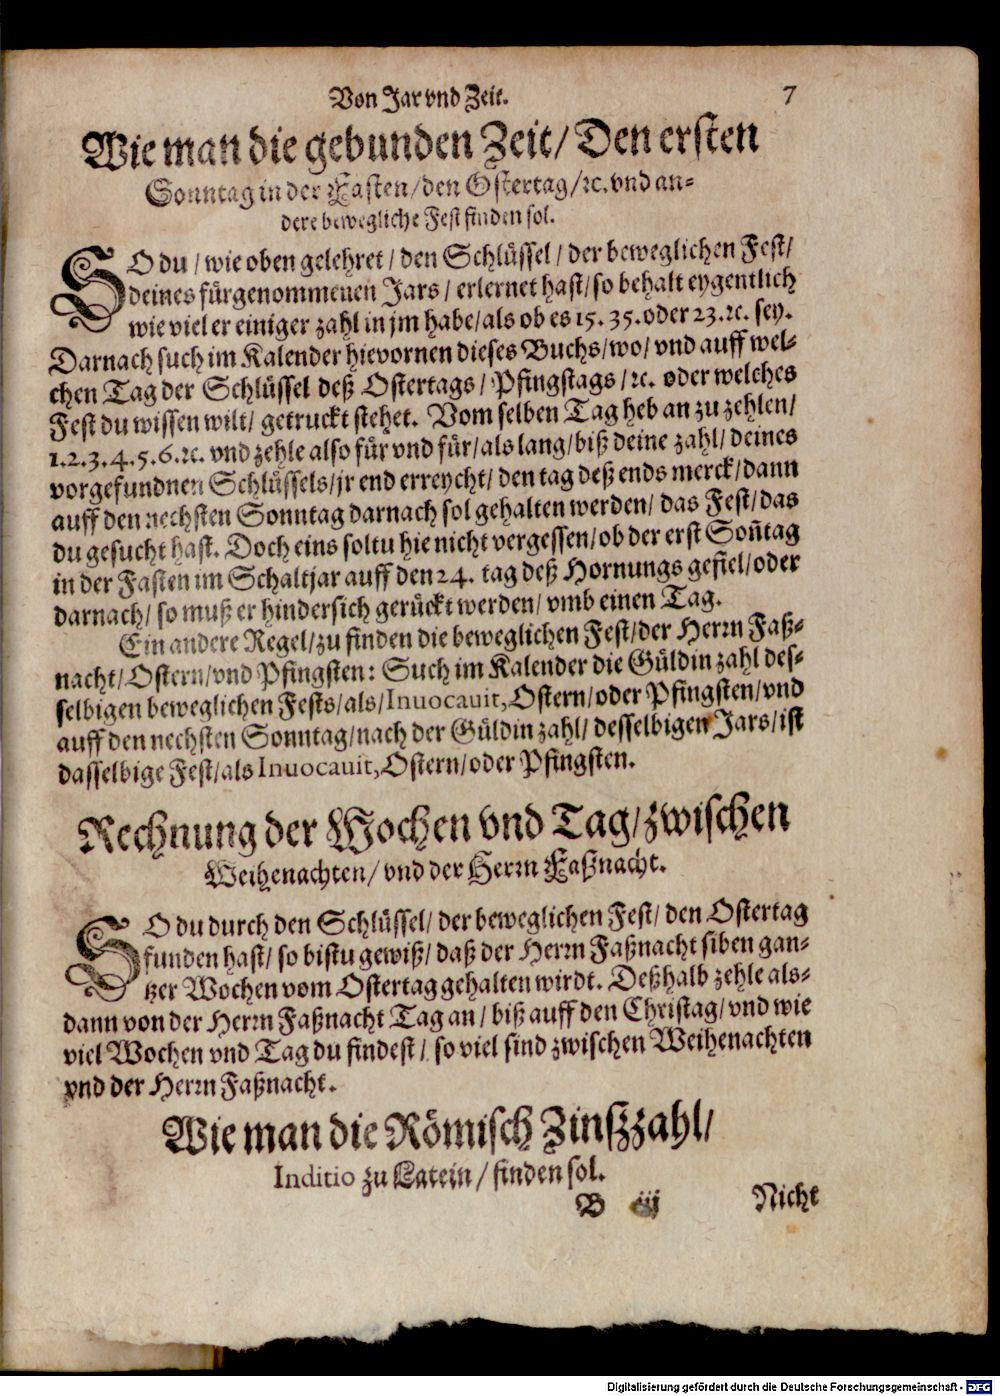 Von Jar vnd Zeit. 7
Wie man die gebunden Zeit/ Den ersten
Sonntag in der Fasten/ den Ostertag/ ꝛc. vnd an-
dere bewegliche Fest finden sol.
SO du/ wie oben gelehret/ den Schlüssel/ der beweglichen Fest/
deines fürgenommenen Jars/ erlernet hast/ so behalt eygentlich
wie viel er einiger zahl in jm habe/ als ob es 15. 35. oder 23. ꝛc. sey.
Darnach such im Kalender hievornen dieses Buchs/ wo/ vnd auff wel-
chen Tag der Schlüssel deß Ostertags/ Pfingstags/ ꝛc. oder welches
Fest du wissen wilt/ getruckt stehet. Vom selben Tag heb an zu zehlen/
1. 2. 3. 4. 5. 6. ꝛc. vnd zehle also für vnd für/ als lang/ biß deine zahl/ deines
vorgefundnen Schlüssels/ jr end erreycht/ den tag deß ends merck/ dann
auff den nechsten Sonntag darnach sol gehalten werden/ das Fest/ das
du gesucht hast. Doch eins soltu hie nicht vergessen/ ob der erst Soñtag
in der Fasten im Schaltjar auff den 24. tag deß Hornungs gefiel/ oder
darnach/ so muß er hindersich gerückt werden/ vmb einen Tag.
Ein andere Regel/ zu finden die beweglichen Fest/ der Herrn Faß-
nacht/ Ostern/ vnd Pfingsten: Such im Kalender die Güldin zahl des-
selbigen beweglichen Fests/ als/ Inuocauit, Ostern/ oder Pfingsten/ vnd
auff den nechsten Sonntag/ nach der Güldin zahl/ desselbigen Jars/ ist
dasselbige Fest/ als Inuocauit, Ostern/ oder Pfingsten.
Rechnung der Wochen vnd Tag/ zwischen
Weihenachten/ vnd der Herrn Faßnacht.
SO du durch den Schlüssel/ der beweglichen Fest/ den Ostertag
funden hast/ so bistu gewiß/ daß der Herrn Faßnacht siben gan-
tzer Wochen vom Ostertag gehalten wirdt. Deßhalb zehle als-
dann von der Herrn Faßnacht Tag an/ biß auff den Christag/ vnd wie
viel Wochen vnd Tag du findest/ so viel sind zwischen Weihenachten
vnd der Herrn Faßnacht.
Wie man die Römisch Zinßzahl/
Inditio zu Latein/ finden sol.
B iij Nicht
Digitalisierung gefördert durch die Deutsche Forschungsgemeinschaft - DFG